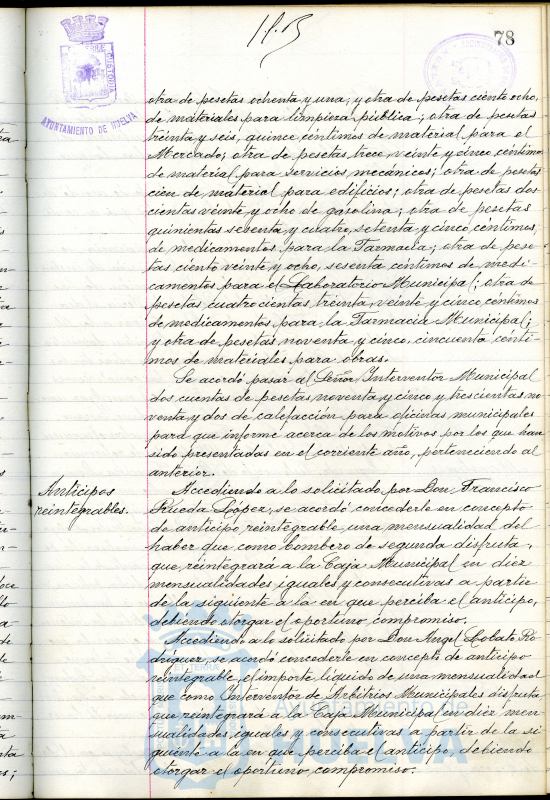 78
AYUNTAMIENTO DE HUELVA
otra de pesetas ochenta y una; y otra de pesetas ciento ocho,
de materiales para limpieza pública; otra de pesetas
treinta y seis, quince céntimos de material para el
Mercado; otra de pesetas trece, veinte y cinco céntimos
de material para servicios mecánicos; otra de pesetas
cien de material para edificios; otra de pesetas dos
cientas veinte y ocho de gasolina; otra de pesetas
quinientas sesenta y cuatro, setenta y cinco céntimos,
de medicamentos para la Farmacia; otra de pese
tas ciento veinte y ocho, sesenta céntimos de medi-
camentos para el Laboratorio Municipal; otra de
pesetas cuatrocientas treinta, veinte y cinco céntimos
de medicamentos para la Farmacia Municipal;
y otra de pesetas noventa y cinco, cincuenta cénti-
mos de materiales para obras.
Se acordó pasar al Señor Interventor Municipal
dos cuentas de pesetas noventa y cinco y trescientas no
venta y dos de calefacción para oficinas municipales
para que informe acerca de los motivos por los que han
sido presentadas en el corriente año, perteneciendo al
anterior.
Anticipos
reintegrables.
Accediendo a lo solicitado por Don Francisco
Rueda López, se acordó concederle en concepto
de anticipo reintegrable una mensualidad del
haber que como bombero de segunda disfruta,
que reintegrará a la Caja Municipal en diez
mensualidades iguales y consecutivas a partir
de la siguiente a la en que perciba el anticipo,
debiendo otorgar el oportuno compromiso.
Accediendo a lo solicitado por Don Angel Lobato Ro
dríguez, se acordó concederle en concepto de anticipo
reintegrable el importe líquido de una mensualidad
que como Interventor de Arbitrios Municipales disfruta
que reintegrará a la Caja Municipal en diez men
sualidades iguales y consecutivas a partir de la si
guiente a la en que perciba el anticipo, debiendo
otorgar el oportuno compromiso.
Ayuntamiento de
HUELVA